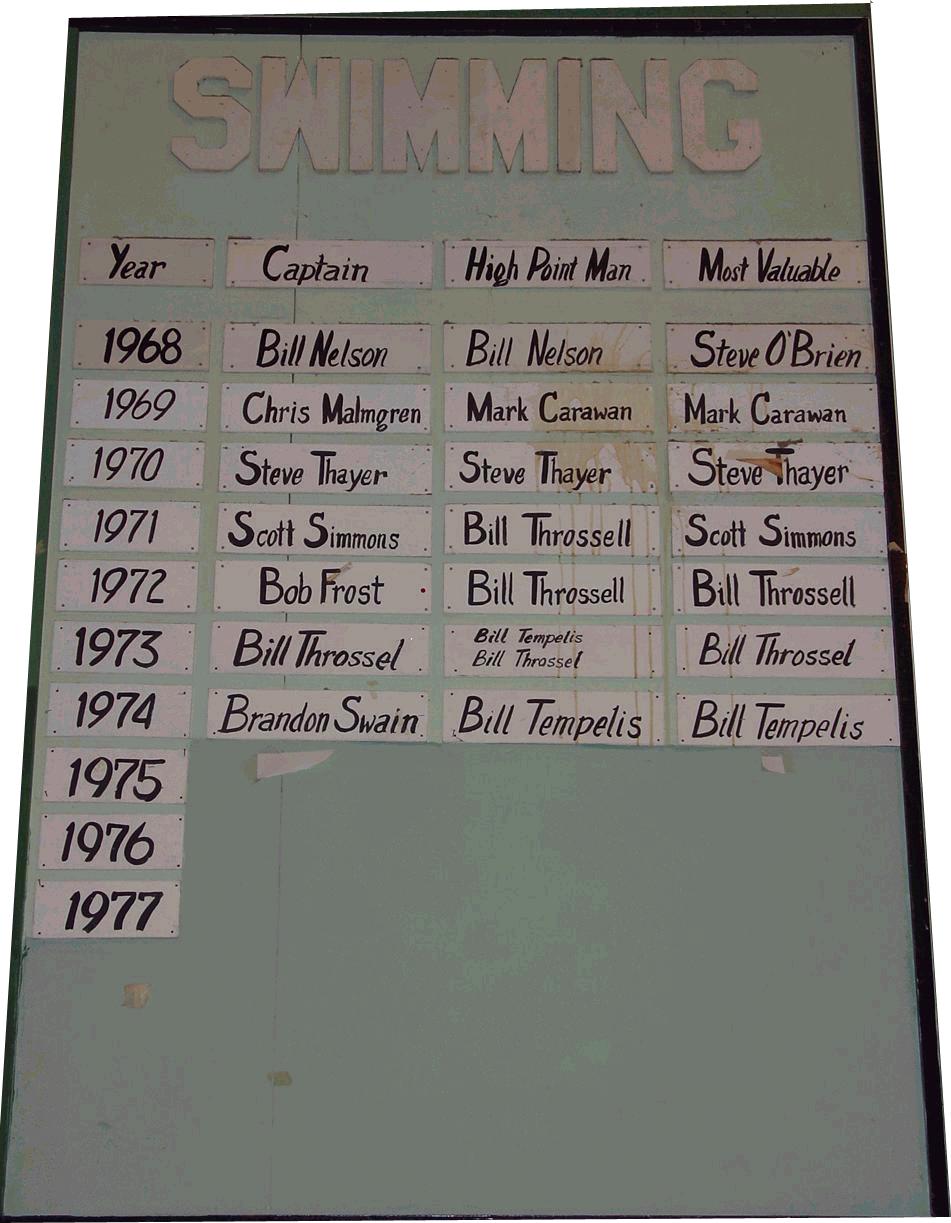 SWIMMING
Year Captain High Point Man Most Valuable
1968 Bill Nelson Bill Nelson Steve O'Brien
1969 Chris Malmgren Mark Carawan Mark Carawan
1970 Steve Thayer Steve Thayer Steve Thayer
1971 Scott Simmons Bill Throssell Scott Simmons
1972 Bob Frost Bill Throssell Bill Throssell
1973 Bill Throssel Bill Tempelis Bill Throssel
Bill Throssel
1974 Brandon Swain Bill Tempelis Bill Tempelis
1975
1976
1977